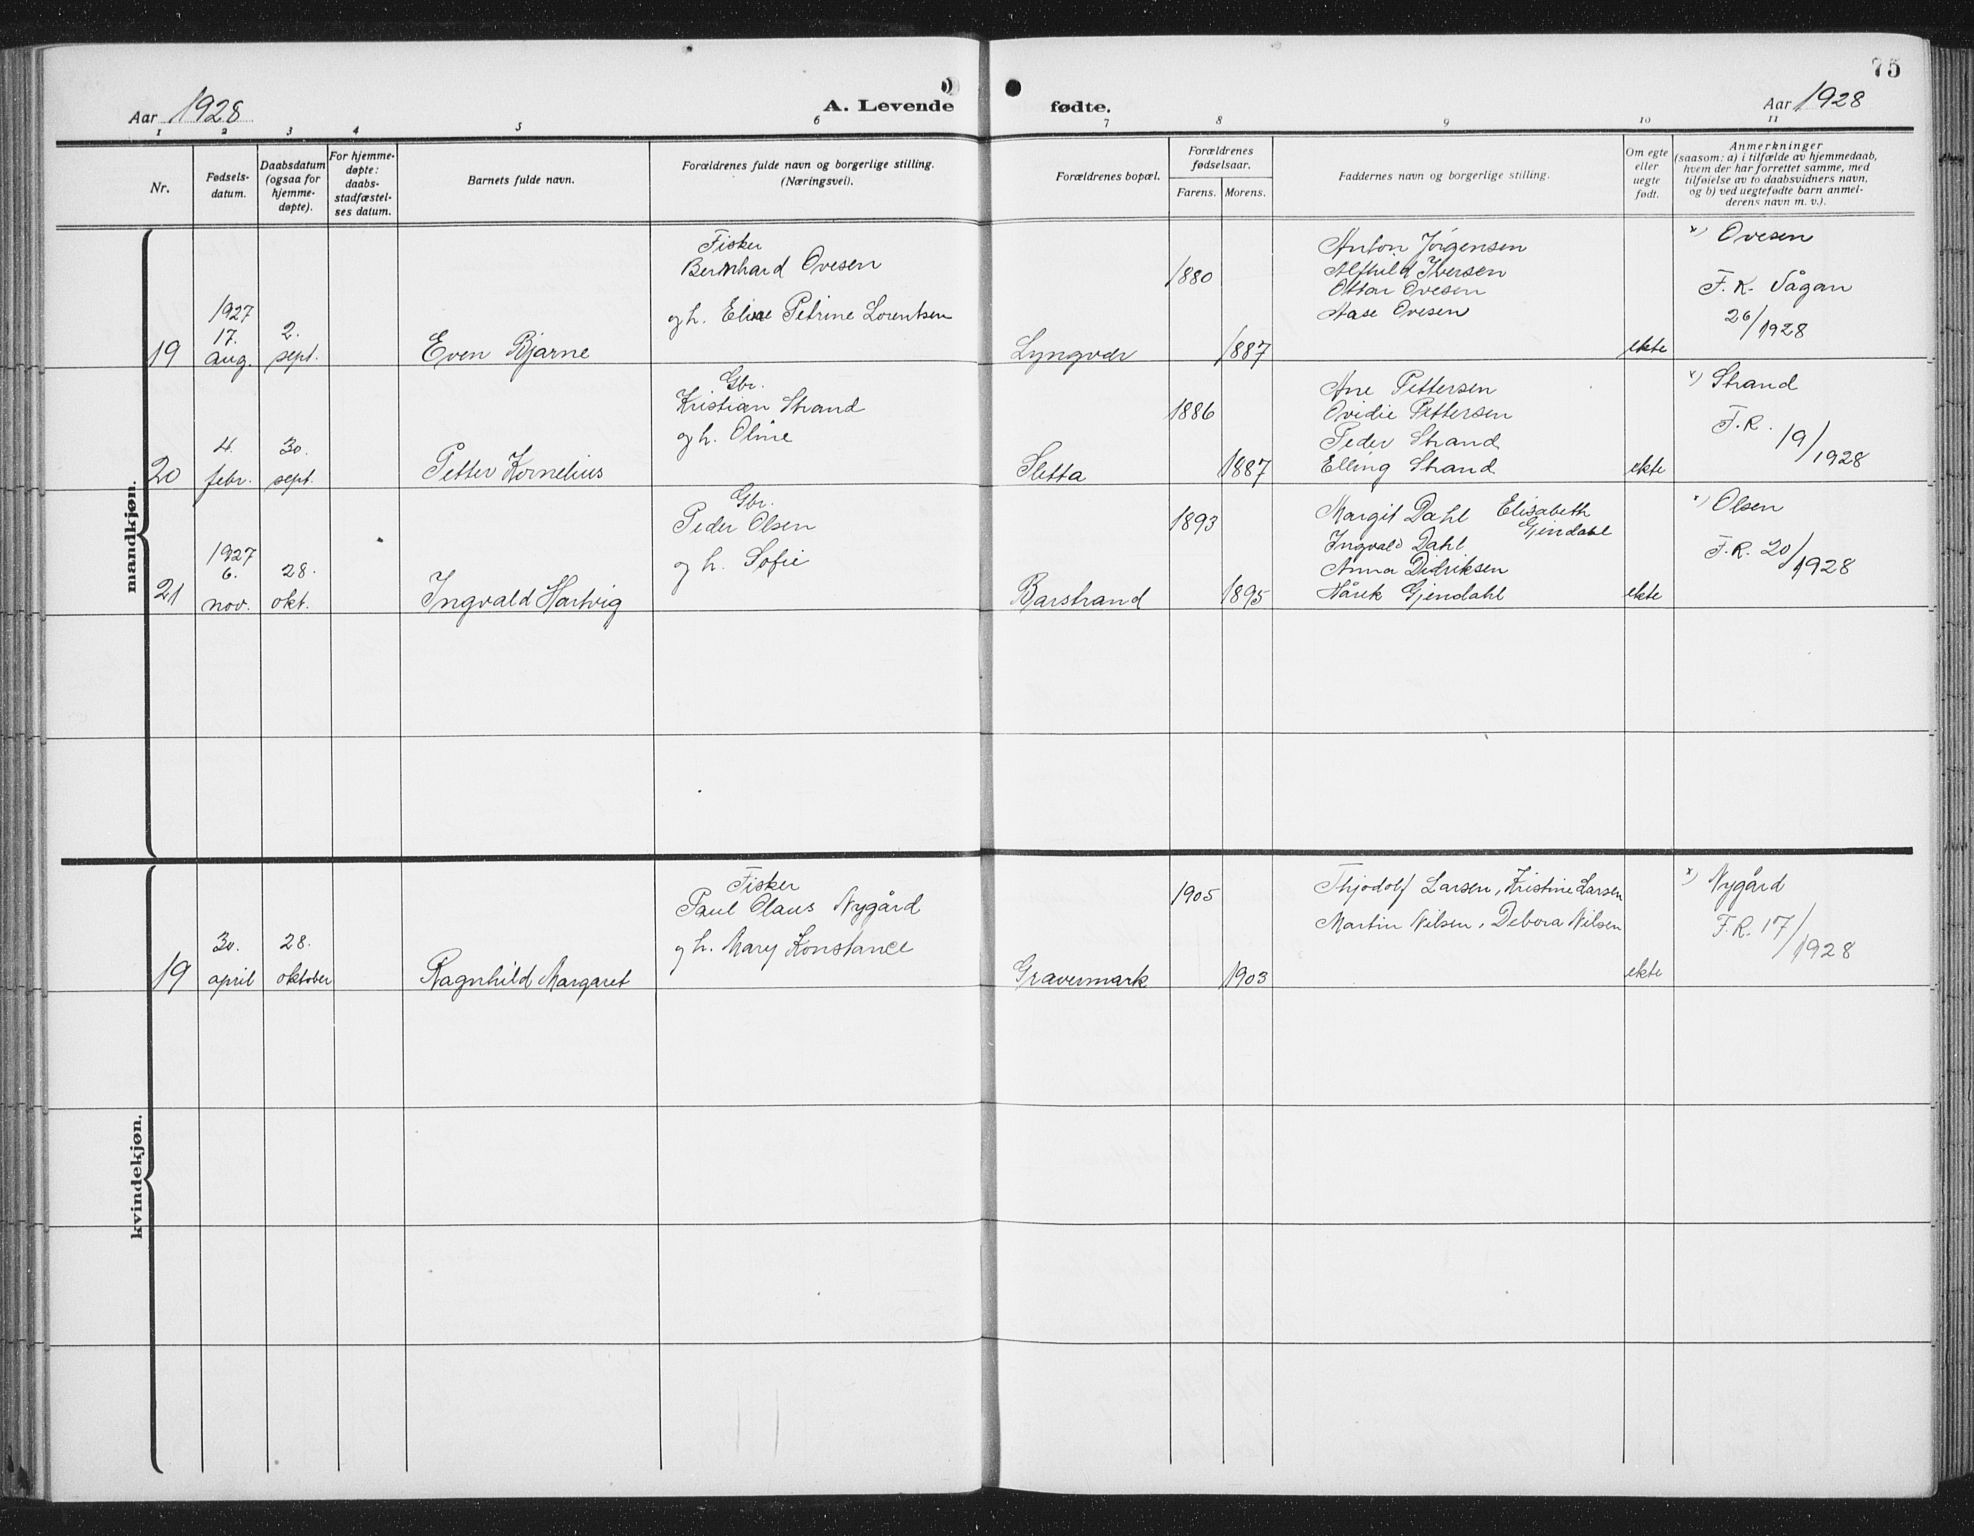 75
Aar 1928
A. Levende
fødte.
Aar 1928
1 2 3 4 5 6 7 8 9 10 11
Nr.
Fødsels-
datum.
Daabsdatum
(ogsaa for
hjemme-
døpte).
For hjemme-
døpte:
daabs-
stadfæstel-
ses datum.
Barnets fulde navn.
Forældrenes fulde navn og borgerlige stilling.
(Næringsvei).
Forældrenes bopæl.
Forældrenes
fødselsaar.
Farens. Morens.
Faddernes navn og borgerlige stilling.
Om egte
eller
uegte
født.
Anmerkninger
(saasom: a) i tilfælde av hjemmedaab,
hvem der har forrettet samme, med
tilføielse av to daabsvidners navn,
og b) ved uegtefødte barn anmel-
derens navn m. v.).
mandkjøn.
19
1927
17.
aug.
2.
sept.
Even Bjarne
Fisker
Bernhard Ovesen
og h. Eline Petrine Lorentsen
Lyngvær
1880
1887
Anton Jørgensen
Alfhild Iversen
Ottar Ovesen
Aase Ovesen
ekte
x) Ovesen
F. K. Vågan
26/1928
20
4.
febr.
30.
sept.
Petter Kornelius
Gbr.
Kristian Strand
og h. Oline
Sletta
1886
1887
Ane Pettersen
Ovidie Pettersen
Peder Strand
Elling Strand
ekte
x) Strand
F.R. 19/1928
21
1927
6.
nov.
28.
okt.
Ingvald Hartvig
Gbr.
Peder Olsen
og h. Sofie
Barstrand
1893
1895
Margit Dahl Elisabeth
Gjendahl
Ingvald Dahl
Anna Didriksen
Hårek Gjendahl
ekte
x) Olsen
F.R. 20/1928
kvindekjøn.
19
30.
april
28.
oktober
Ragnhild Margaret
Fisker
Paul Olaus Nygård
og h. Mary Konstance
Gravermark
1905
1903
Thjodolf Larsen, Kristine Larsen
Martin Nilsen, Debora Nilsen
ekte
x) Nygård
F.R. 17/1928